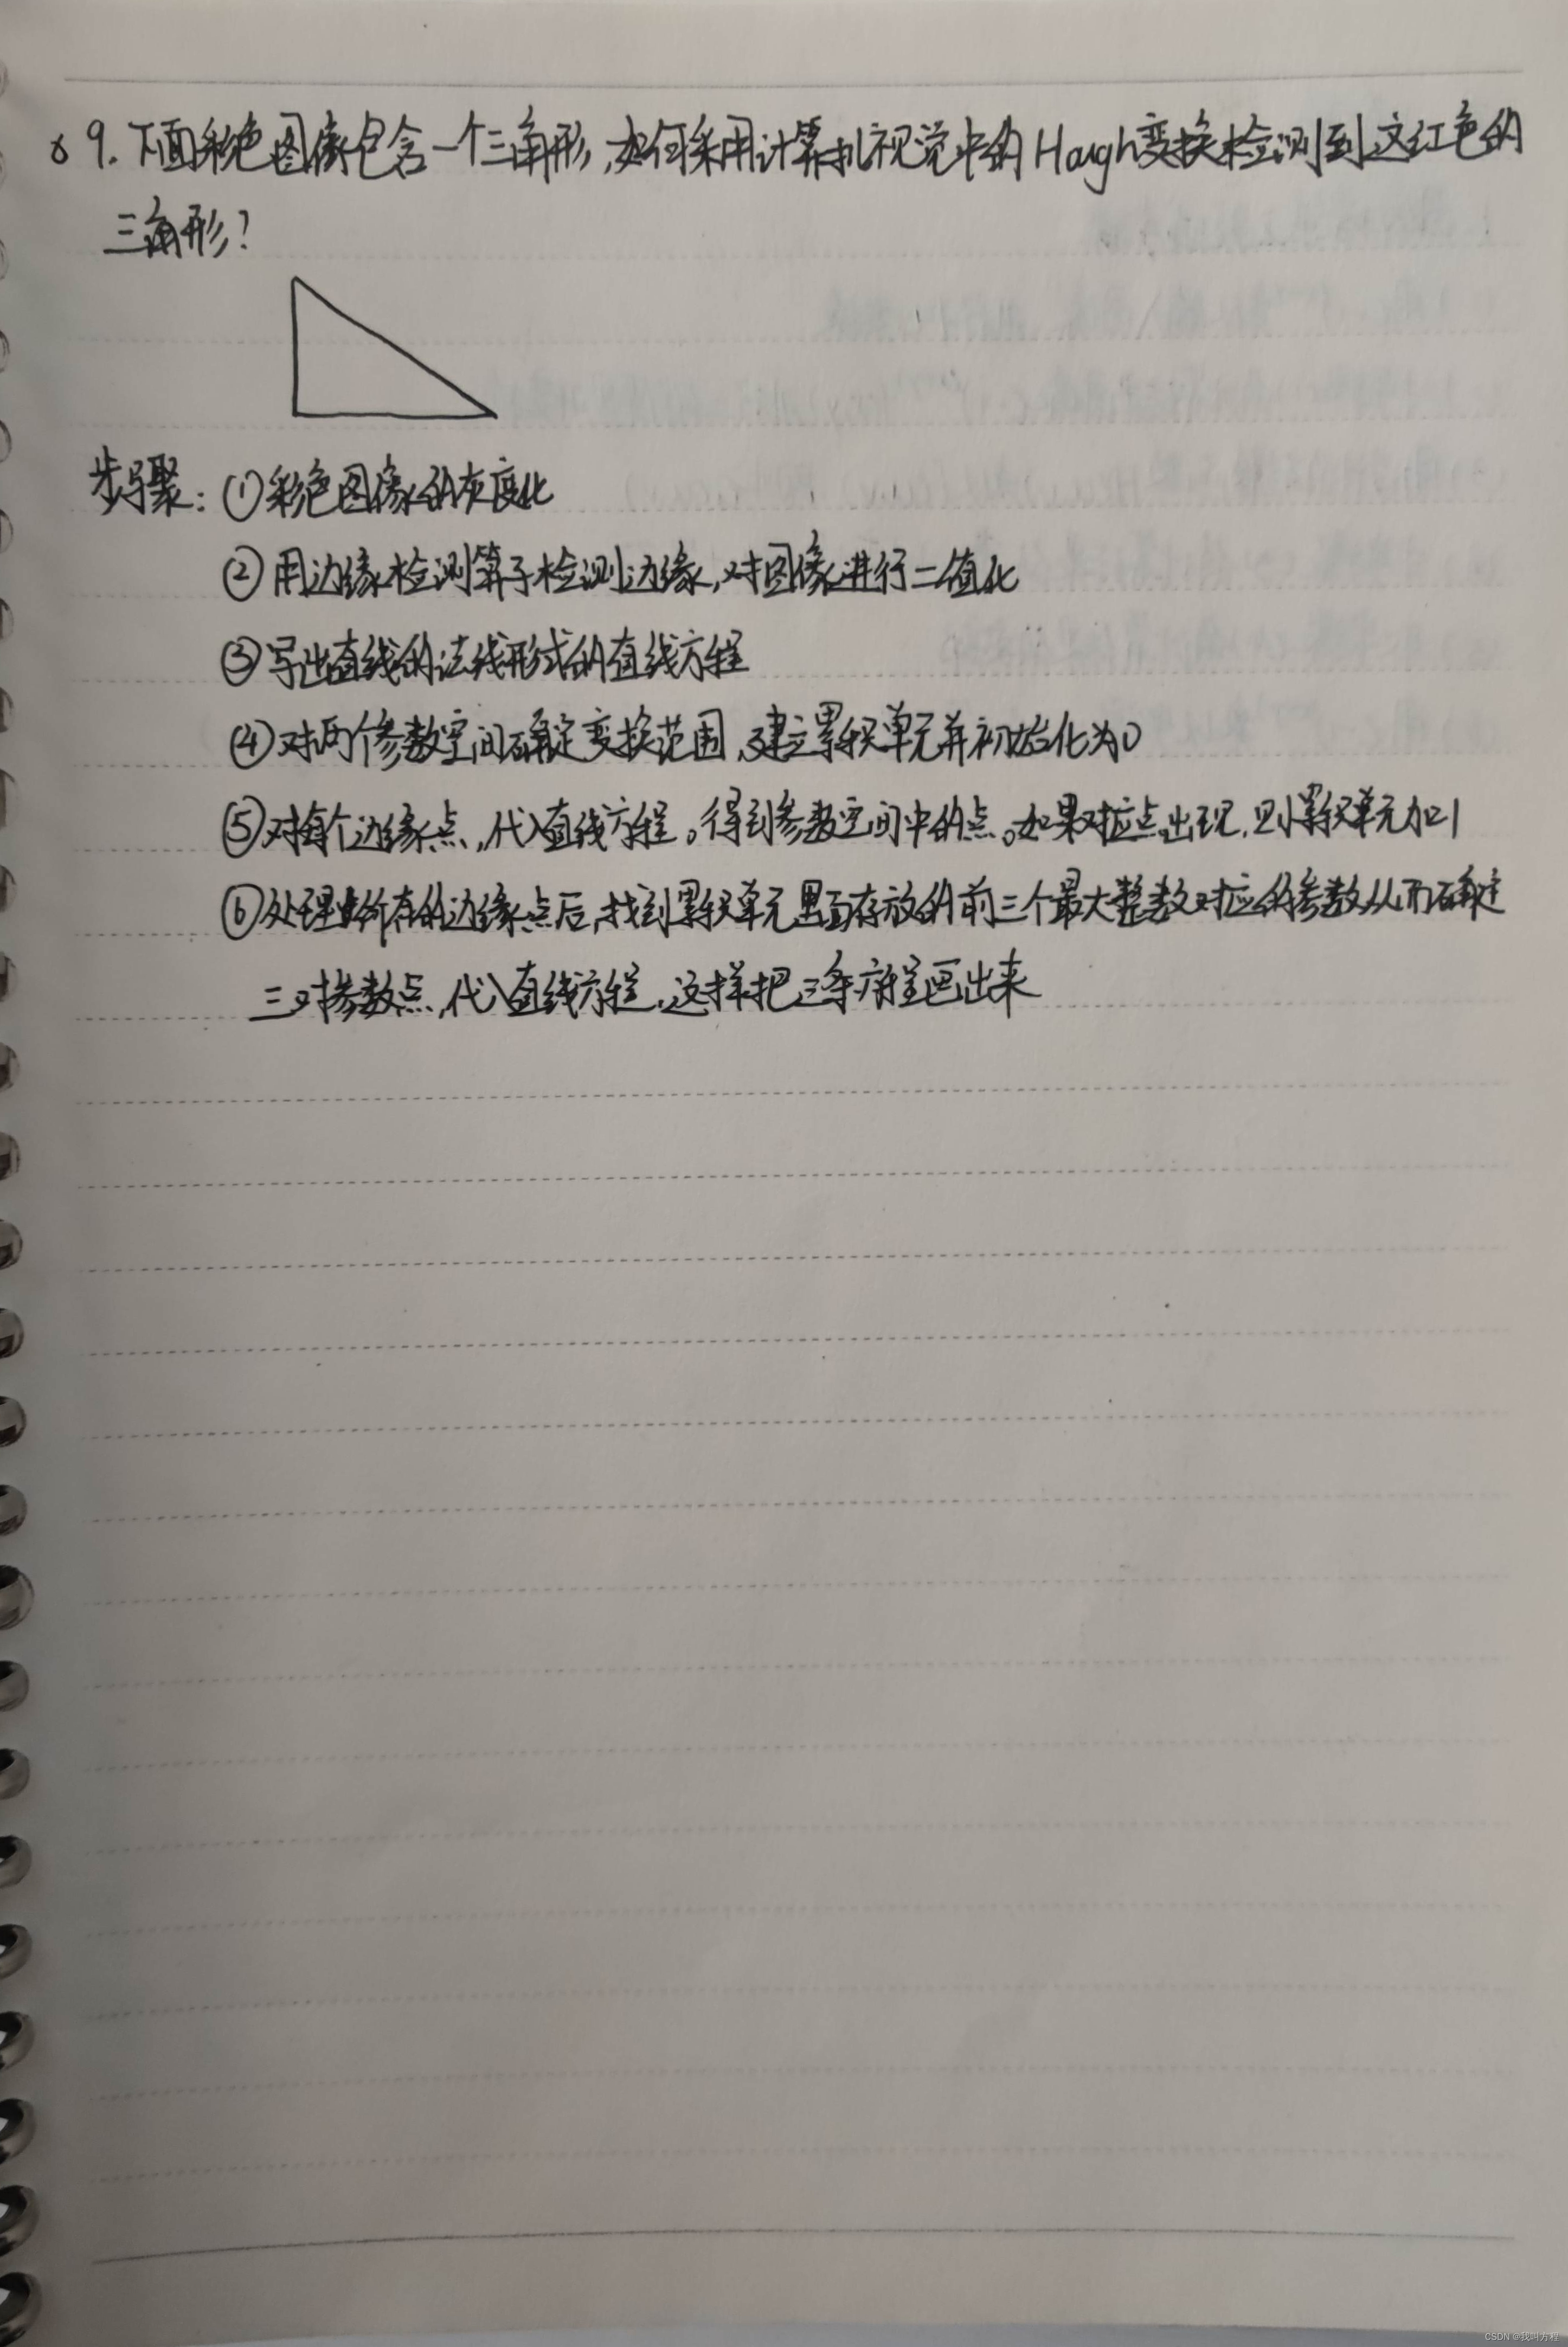 69. 下面彩色图像包含一个三角形,如何采用计算机视觉中的Hough变换检测到这红色的
三角形?
步骤:①彩色图像的灰度化
②用边缘检测算子检测边缘,对图像进行二值化
③写出直线的法线形式的直线方程
④对两个参数空间确定变换范围,建立累积单元并初始化为0
⑤对每个边缘点,代入直线方程。得到参数空间中的点。如果对应点出现,则累积单元加1
⑥处理完所有的边缘点后,找到累积单元里面存放的前三个最大整数对应的参数,从而确定
三对参数点,代入直线方程,这样把三条方程画出来
CSDN @我叫方程